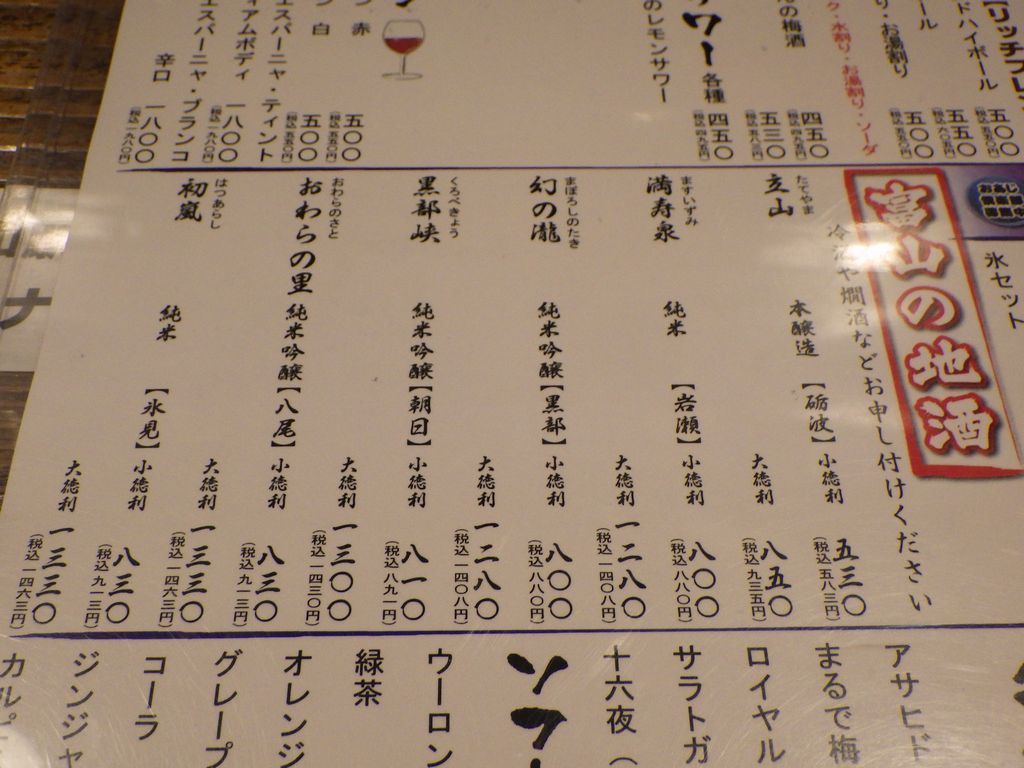 【リッチブレ
ドハイボール
五〇〇
五五〇
五〇〇
ール
り・お湯割り
ク・水割り・お湯割り・ソーダ
の梅酒
四五〇
五三〇
四五〇
ワー 各種
のレモンサワー
赤
五〇〇
(税込五五〇円)
白
五〇〇
(税込五五〇円)
エスパーニャ・ティント
ィアムボディ
一八〇〇
エスパーニャ・ブランコ
辛口
一八〇〇
(税込一九八〇円)
氷セット
富山の地酒
冷酒や燗酒などお申し付けください
たてやま
立山 本醸造 【砺波】 小徳利 五三〇
(税込 五八三円)
大徳利 八五〇
(税込 九三五円)
ますいずみ
満寿泉 純米 【岩瀬】 小徳利 八〇〇
(税込 八八〇円)
大徳利 一二八〇
(税込 一四〇八円)
まぼろしのたき
幻の瀧 純米吟醸【黒部】 小徳利 八〇〇
(税込 八八〇円)
大徳利 一二八〇
(税込 一四〇八円)
くろべきょう
黒部峡 純米吟醸【朝日】 小徳利 八一〇
(税込 八九一円)
大徳利 一三〇〇
(税込 一四三〇円)
おわらのさと
おわらの里 純米吟醸【八尾】 小徳利 八三〇
(税込 九一三円)
大徳利 一三三〇
(税込 一四六三円)
はつあらし
初嵐 純米 【氷見】 小徳利 八三〇
(税込 九一三円)
大徳利 一三三〇
(税込 一四六三円)
アサヒド
まるで梅
ロイヤル
サラトガ
十六夜(
ソフ
ウーロン
緑茶
オレンジ
グレープ
コーラ
ジンジャ
カルピ